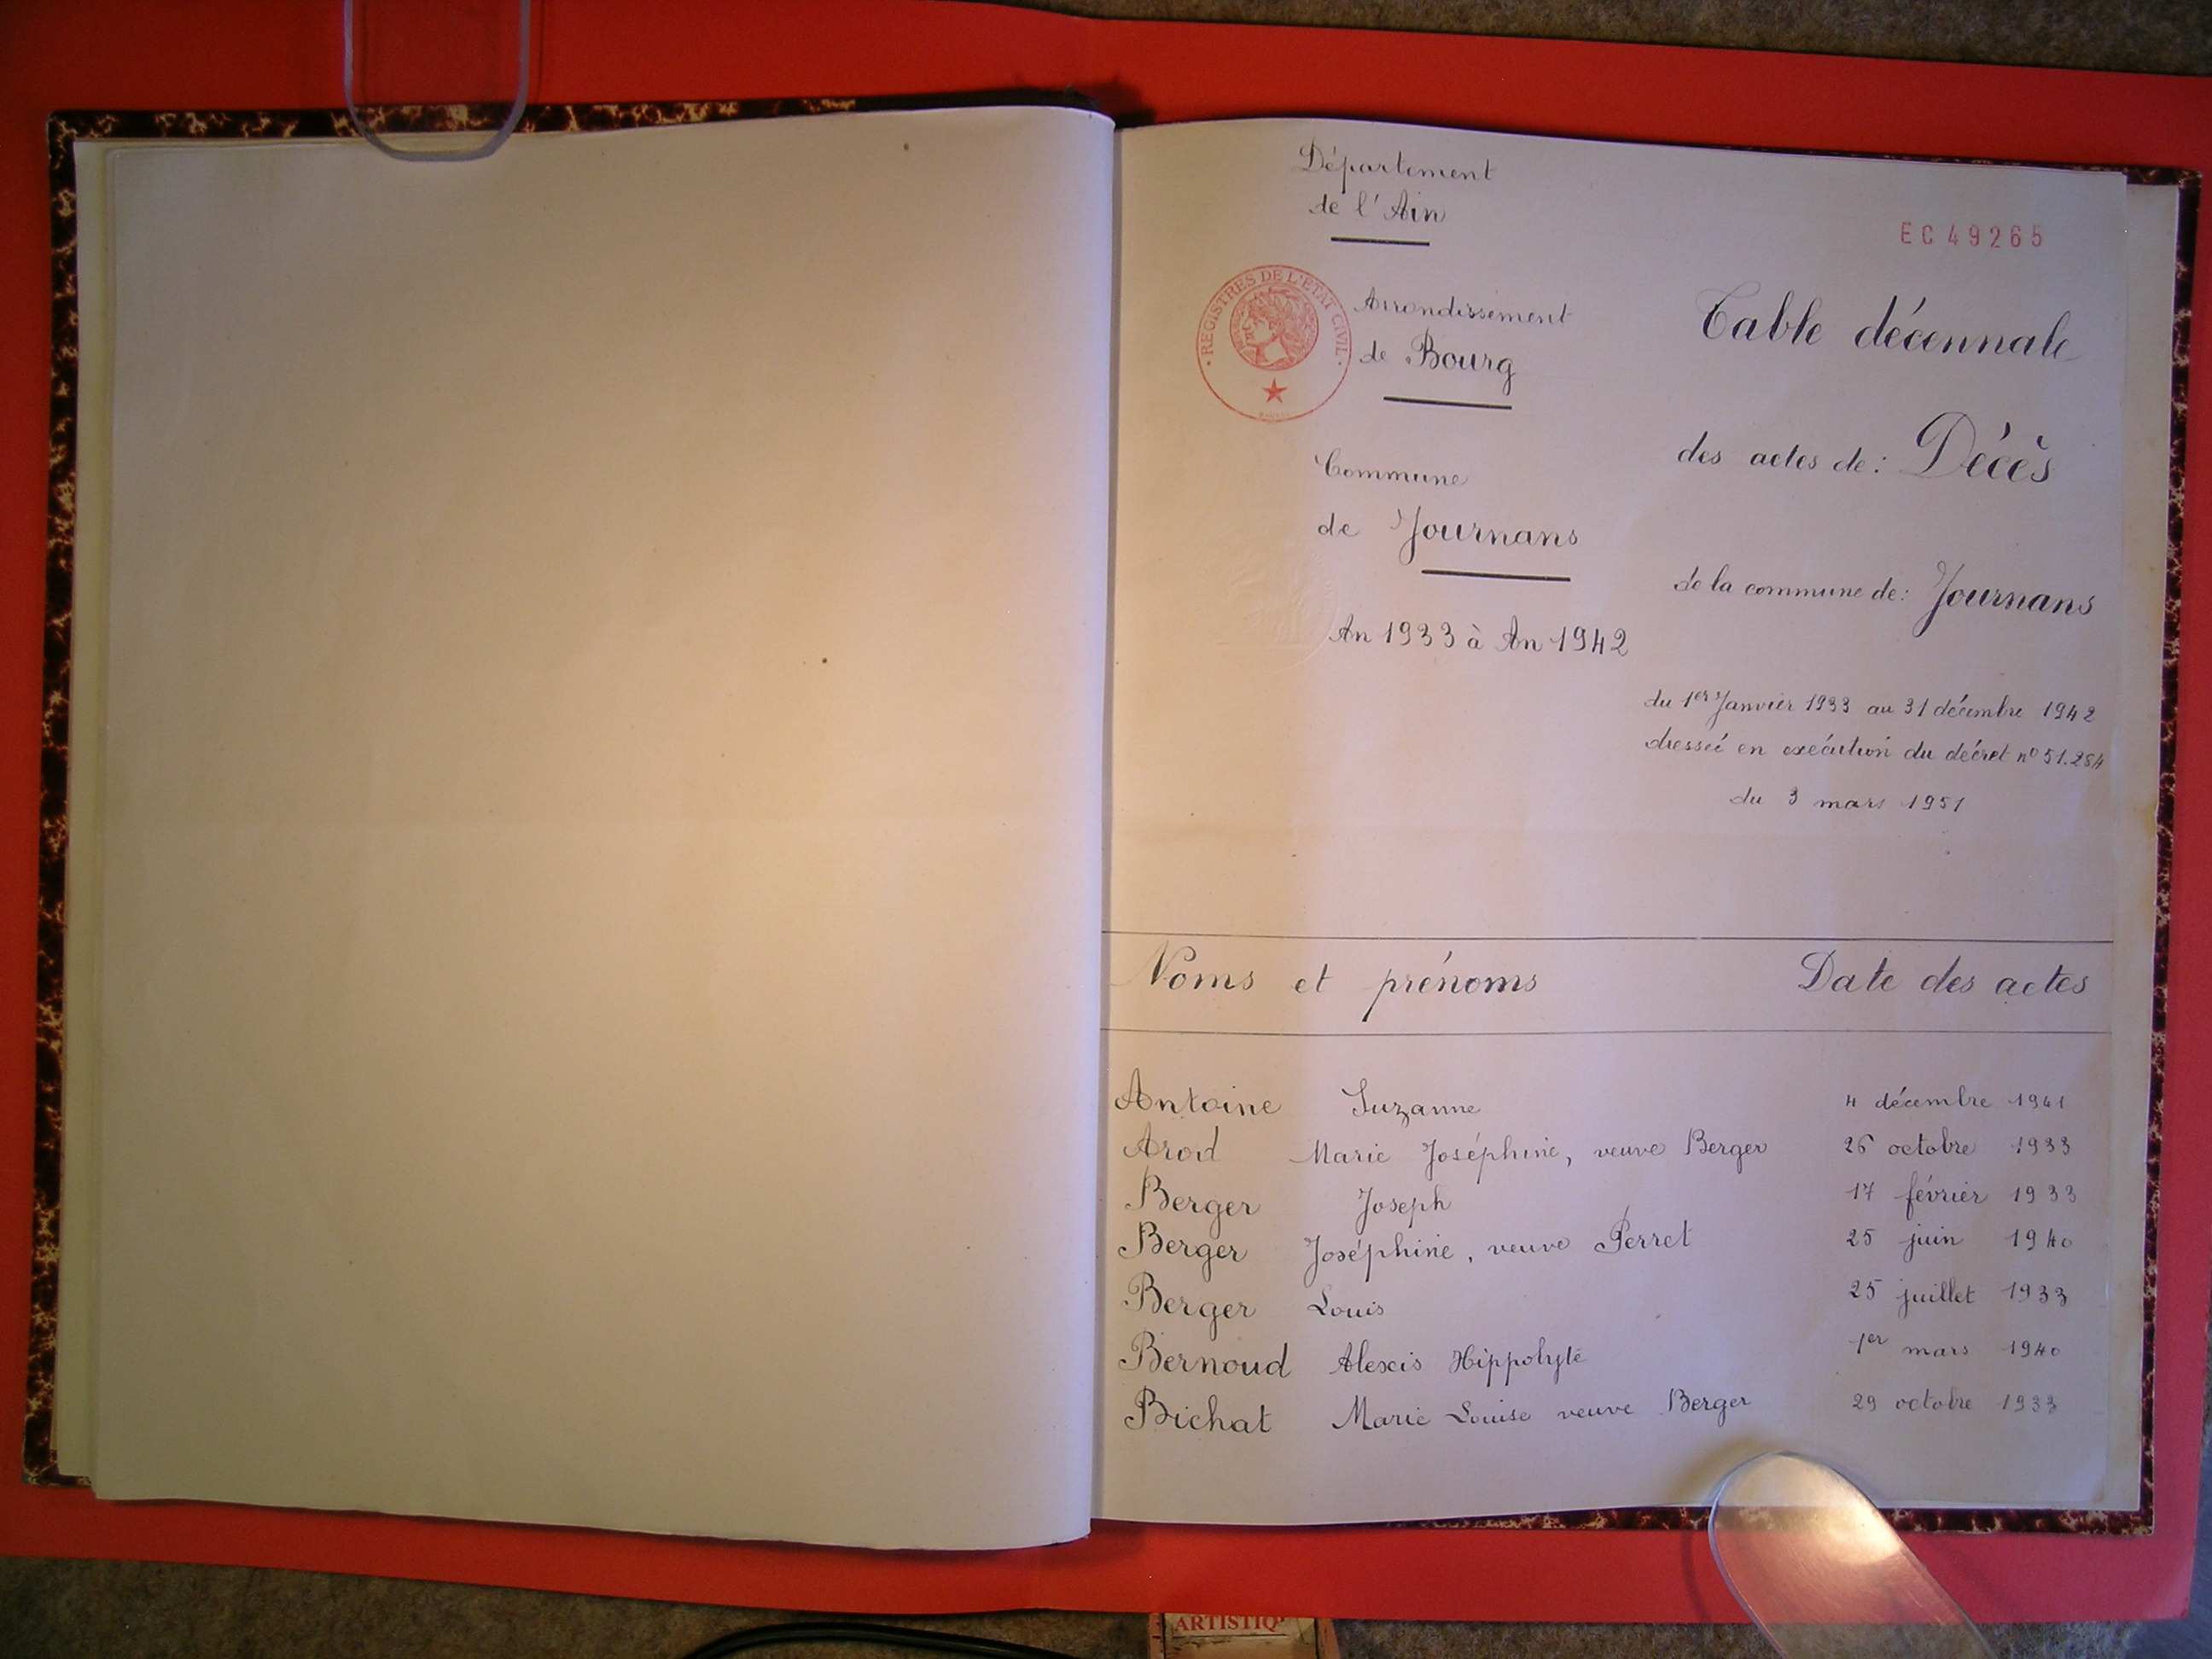 Département
de l'Ain
EC 49265
REGISTRES DE L'ETAT CIVIL
Arrondissement
de Bourg
Table décennale
Commune
de Journans
des actes de : Décès
An 1933 à An 1942
de la commune de : Journans
du 1er Janvier 1933 au 31 décembre 1942
dressée en exécution du décret n° 51.284
du 3 mars 1951
Noms et prénoms Date des actes
Antoine Suzanne 4 décembre 1941
Arod Marie Joséphine, veuve Berger 26 octobre 1933
Berger Joseph 17 février 1933
Berger Joséphine, veuve Perret 25 juin 1940
Berger Louis 25 juillet 1933
Bernoud Alexis Hippolyte 1er mars 1940
Bichat Marie Louise veuve Berger 29 octobre 1933